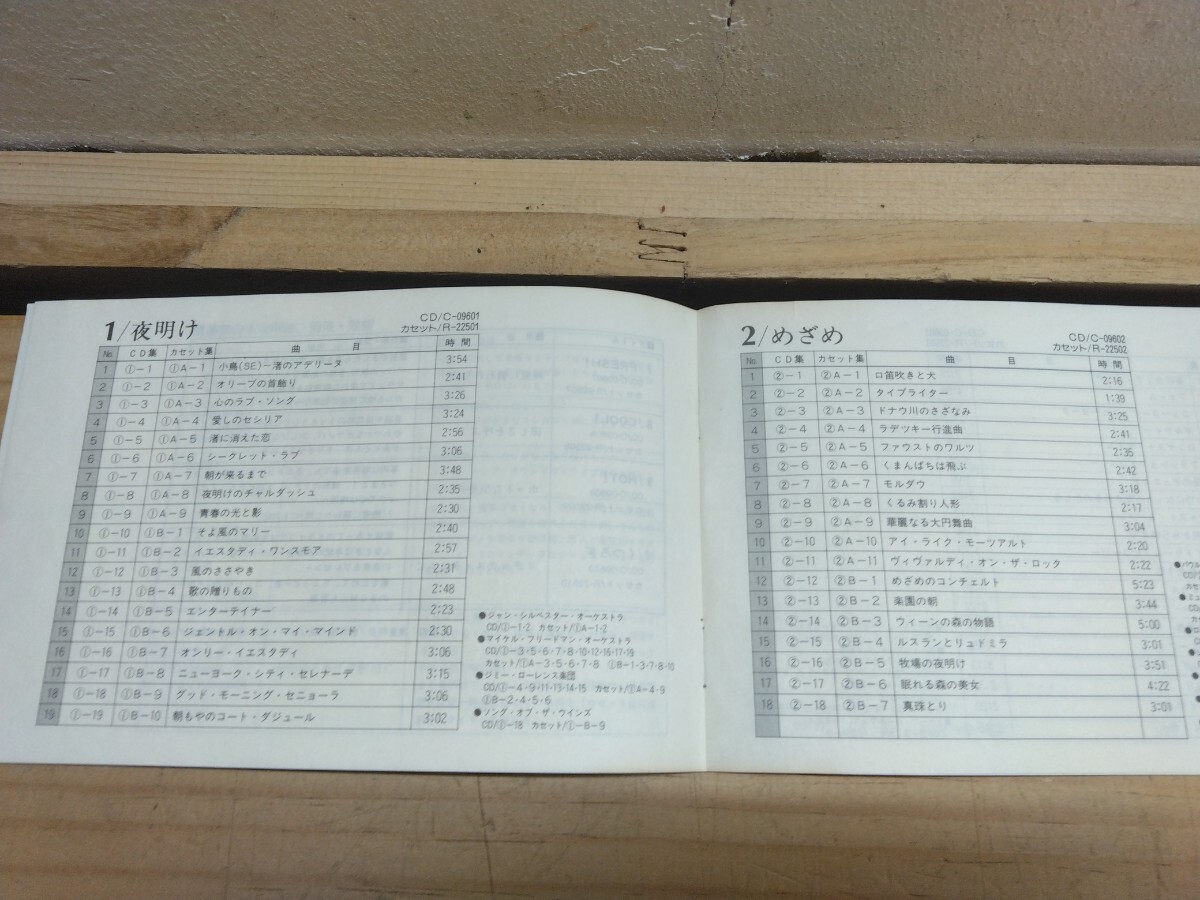 1/夜明け
CD/C-09601
カセット/R-22501
No. CD集 カセット集 曲目 時間
1 ①-1 ①A-1 小鳥(SE)-渚のアデリーヌ 3:54
2 ①-2 ①A-2 オリーブの首飾り 2:41
3 ①-3 ①A-3 心のラブ・ソング 3:26
4 ①-4 ①A-4 愛しのセシリア 3:24
5 ①-5 ①A-5 渚に消えた恋 2:56
6 ①-6 ①A-6 シークレット・ラブ 3:06
7 ①-7 ①A-7 朝が来るまで 3:48
8 ①-8 ①A-8 夜明けのチャルダッシュ 2:35
9 ①-9 ①A-9 青春の光と影 2:30
10 ①-10 ①B-1 そよ風のマリー 2:40
11 ①-11 ①B-2 イエスタディ・ワンスモア 2:57
12 ①-12 ①B-3 風のささやき 2:31
13 ①-13 ①B-4 歌の贈りもの 2:48
14 ①-14 ①B-5 エンターテイナー 2:23
15 ①-15 ①B-6 ジェントル・オン・マイ・マインド 2:30
16 ①-16 ①B-7 オンリー・イエスタディ 3:06
17 ①-17 ①B-8 ニューヨーク・シティ・セレナーデ 3:15
18 ①-18 ①B-9 グッド・モーニング・セニョーラ 3:06
19 ①-19 ①B-10 朝もやのコート・ダジュール 3:02
●ジャン・シルベスター・オーケストラ
CD/①-1・2 カセット/①A-1・2
●マイケル・フリードマン・オーケストラ
CD/①-3・5・6・7・8・10・12・16・17・19
カセット/①A-3・5・6・7・8 ①B-1・3・7・8・10
●ジミー・ローレンス楽団
CD/①-4・9・11・13・14・15 カセット/①A-4・9
①B-2・4・5・6
●ソング・オブ・ザ・ウインズ
CD/①-18 カセット/①-B-9
2/めざめ
CD/C-09602
カセット/R-22502
No. CD集 カセット集 曲目 時間
1 ②-1 ②A-1 口笛吹きと犬 2:16
2 ②-2 ②A-2 タイプライター 1:39
3 ②-3 ②A-3 ドナウ川のさざなみ 3:25
4 ②-4 ②A-4 ラデツキー行進曲 2:41
5 ②-5 ②A-5 ファウストのワルツ 2:35
6 ②-6 ②A-6 くまんばちは飛ぶ 2:42
7 ②-7 ②A-7 モルダウ 3:18
8 ②-8 ②A-8 くるみ割り人形 2:17
9 ②-9 ②A-9 華麗なる大円舞曲 3:04
10 ②-10 ②A-10 アイ・ライク・モーツアルト 2:20
11 ②-11 ②A-11 ヴィヴァルディ・オン・ザ・ロック 2:22
12 ②-12 ②B-1 めざめのコンチェルト 5:23
13 ②-13 ②B-2 楽園の朝 3:44
14 ②-14 ②B-3 ウィーンの森の物語 5:00
15 ②-15 ②B-4 ルスランとリュドミラ 3:01
16 ②-16 ②B-5 牧場の夜明け 3:51
17 ②-17 ②B-6 眠れる森の美女 4:22
18 ②-18 ②B-7 真珠とり 3:01